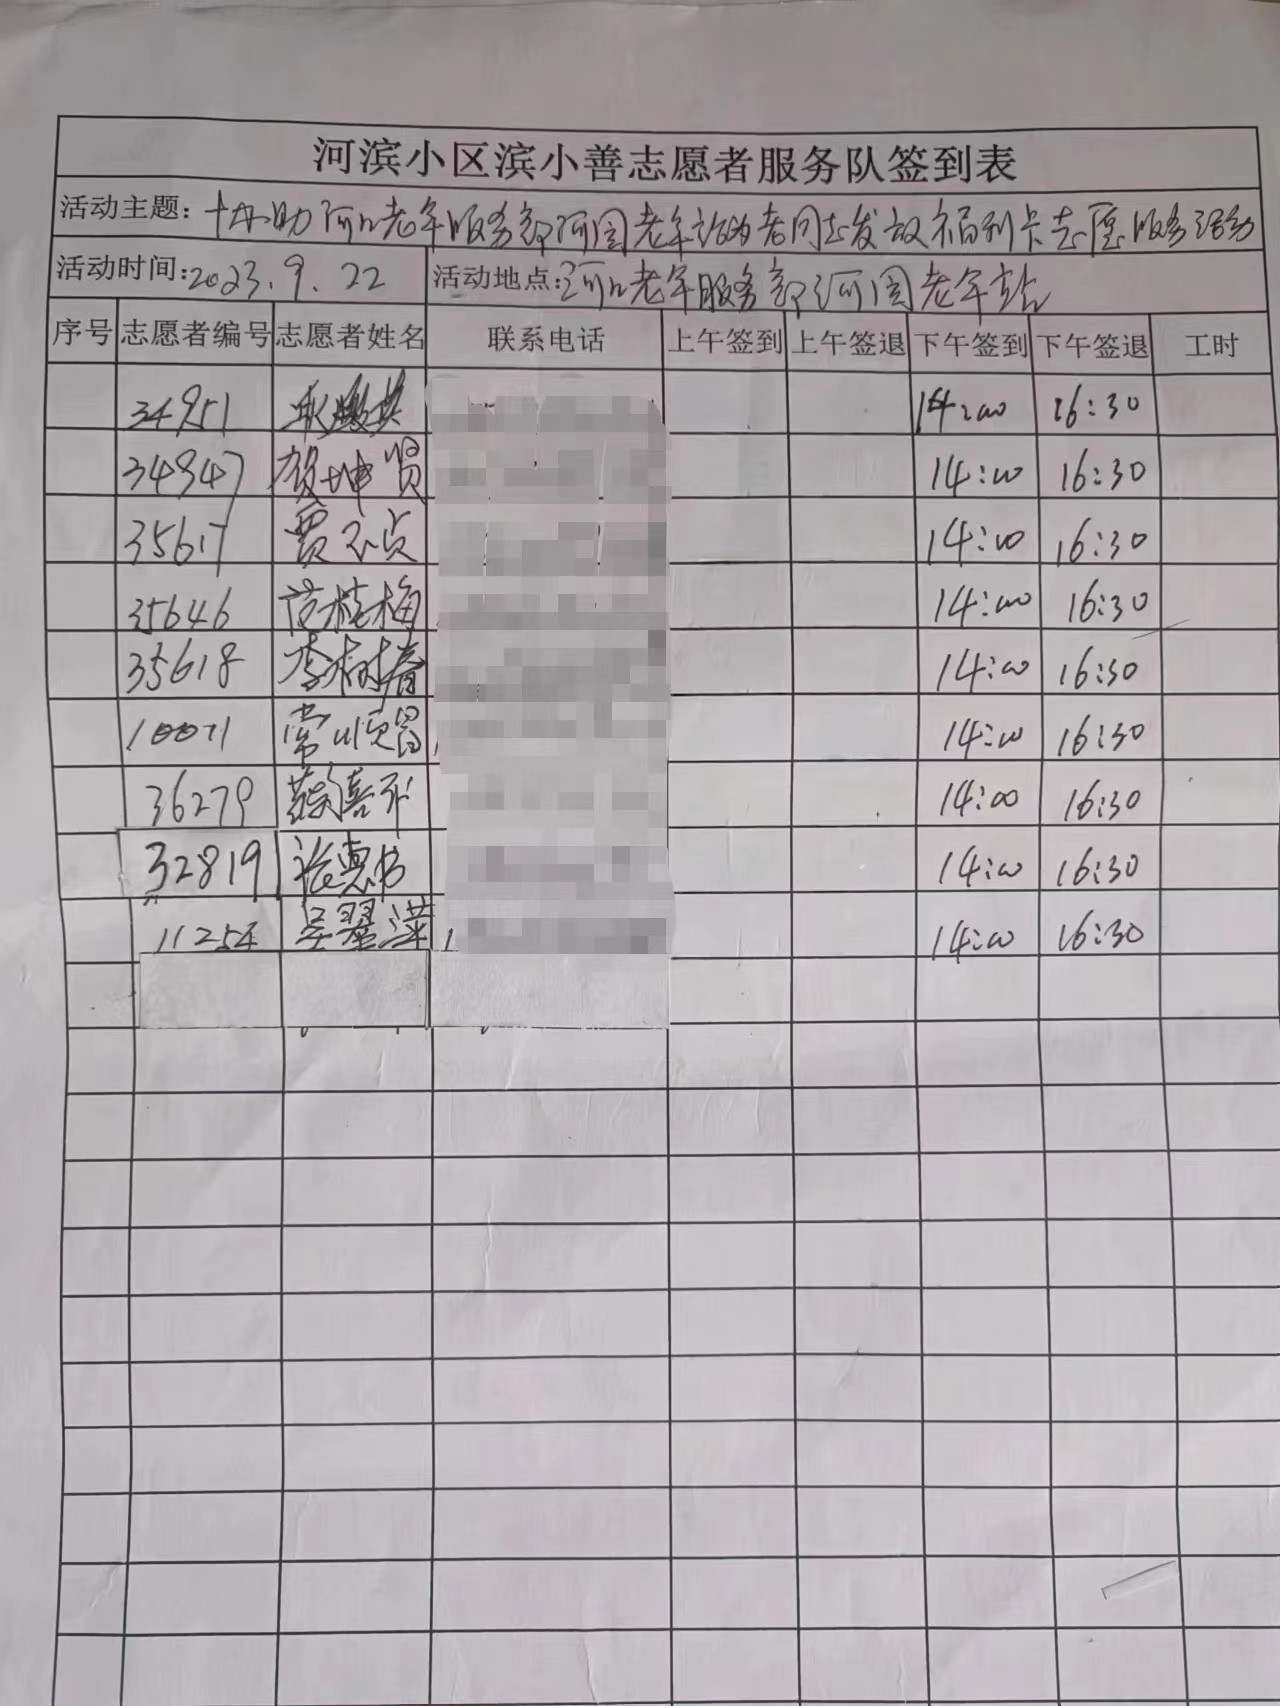 河滨小区滨小善志愿者服务队签到表
活动主题：协助河北老年服务部河园老年站为老同志发放福利卡志愿服务活动
活动时间：2023.9.22 活动地点：河北老年服务部河园老年站
序号 志愿者编号 志愿者姓名 联系电话 上午签到 上午签退 下午签到 下午签退 工时
34951 14:00 16:30
34947 贺坤贤 14:00 16:30
35617 贾不贞 14:00 16:30
35646 范桂梅 14:00 16:30
35618 李树春 14:00 16:30
10071 常顺昌 14:00 16:30
36279 蔡喜平 14:00 16:30
32819 张惠书 14:00 16:30
11254 吴翠萍 14:00 16:30